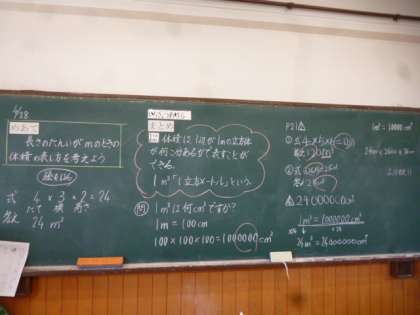 4/28
めあて
長さのたんいがmのときの
体積の表し方を考えよう
式 4×3×2=24
たて 横 高さ
答え 24m³
まとめ
体積は1辺が1mの立方体
が何こ分あるかで表すことが
できる。
1m³「1立方メートル」という。
問 1m³は何cm³ですか?
1m=100cm
100×100×100=1000000cm³
P21
① 式 4×5×
答え
②
2400000cm³
1m³=1000000cm³
×24 ×24
24m³=24000000cm³